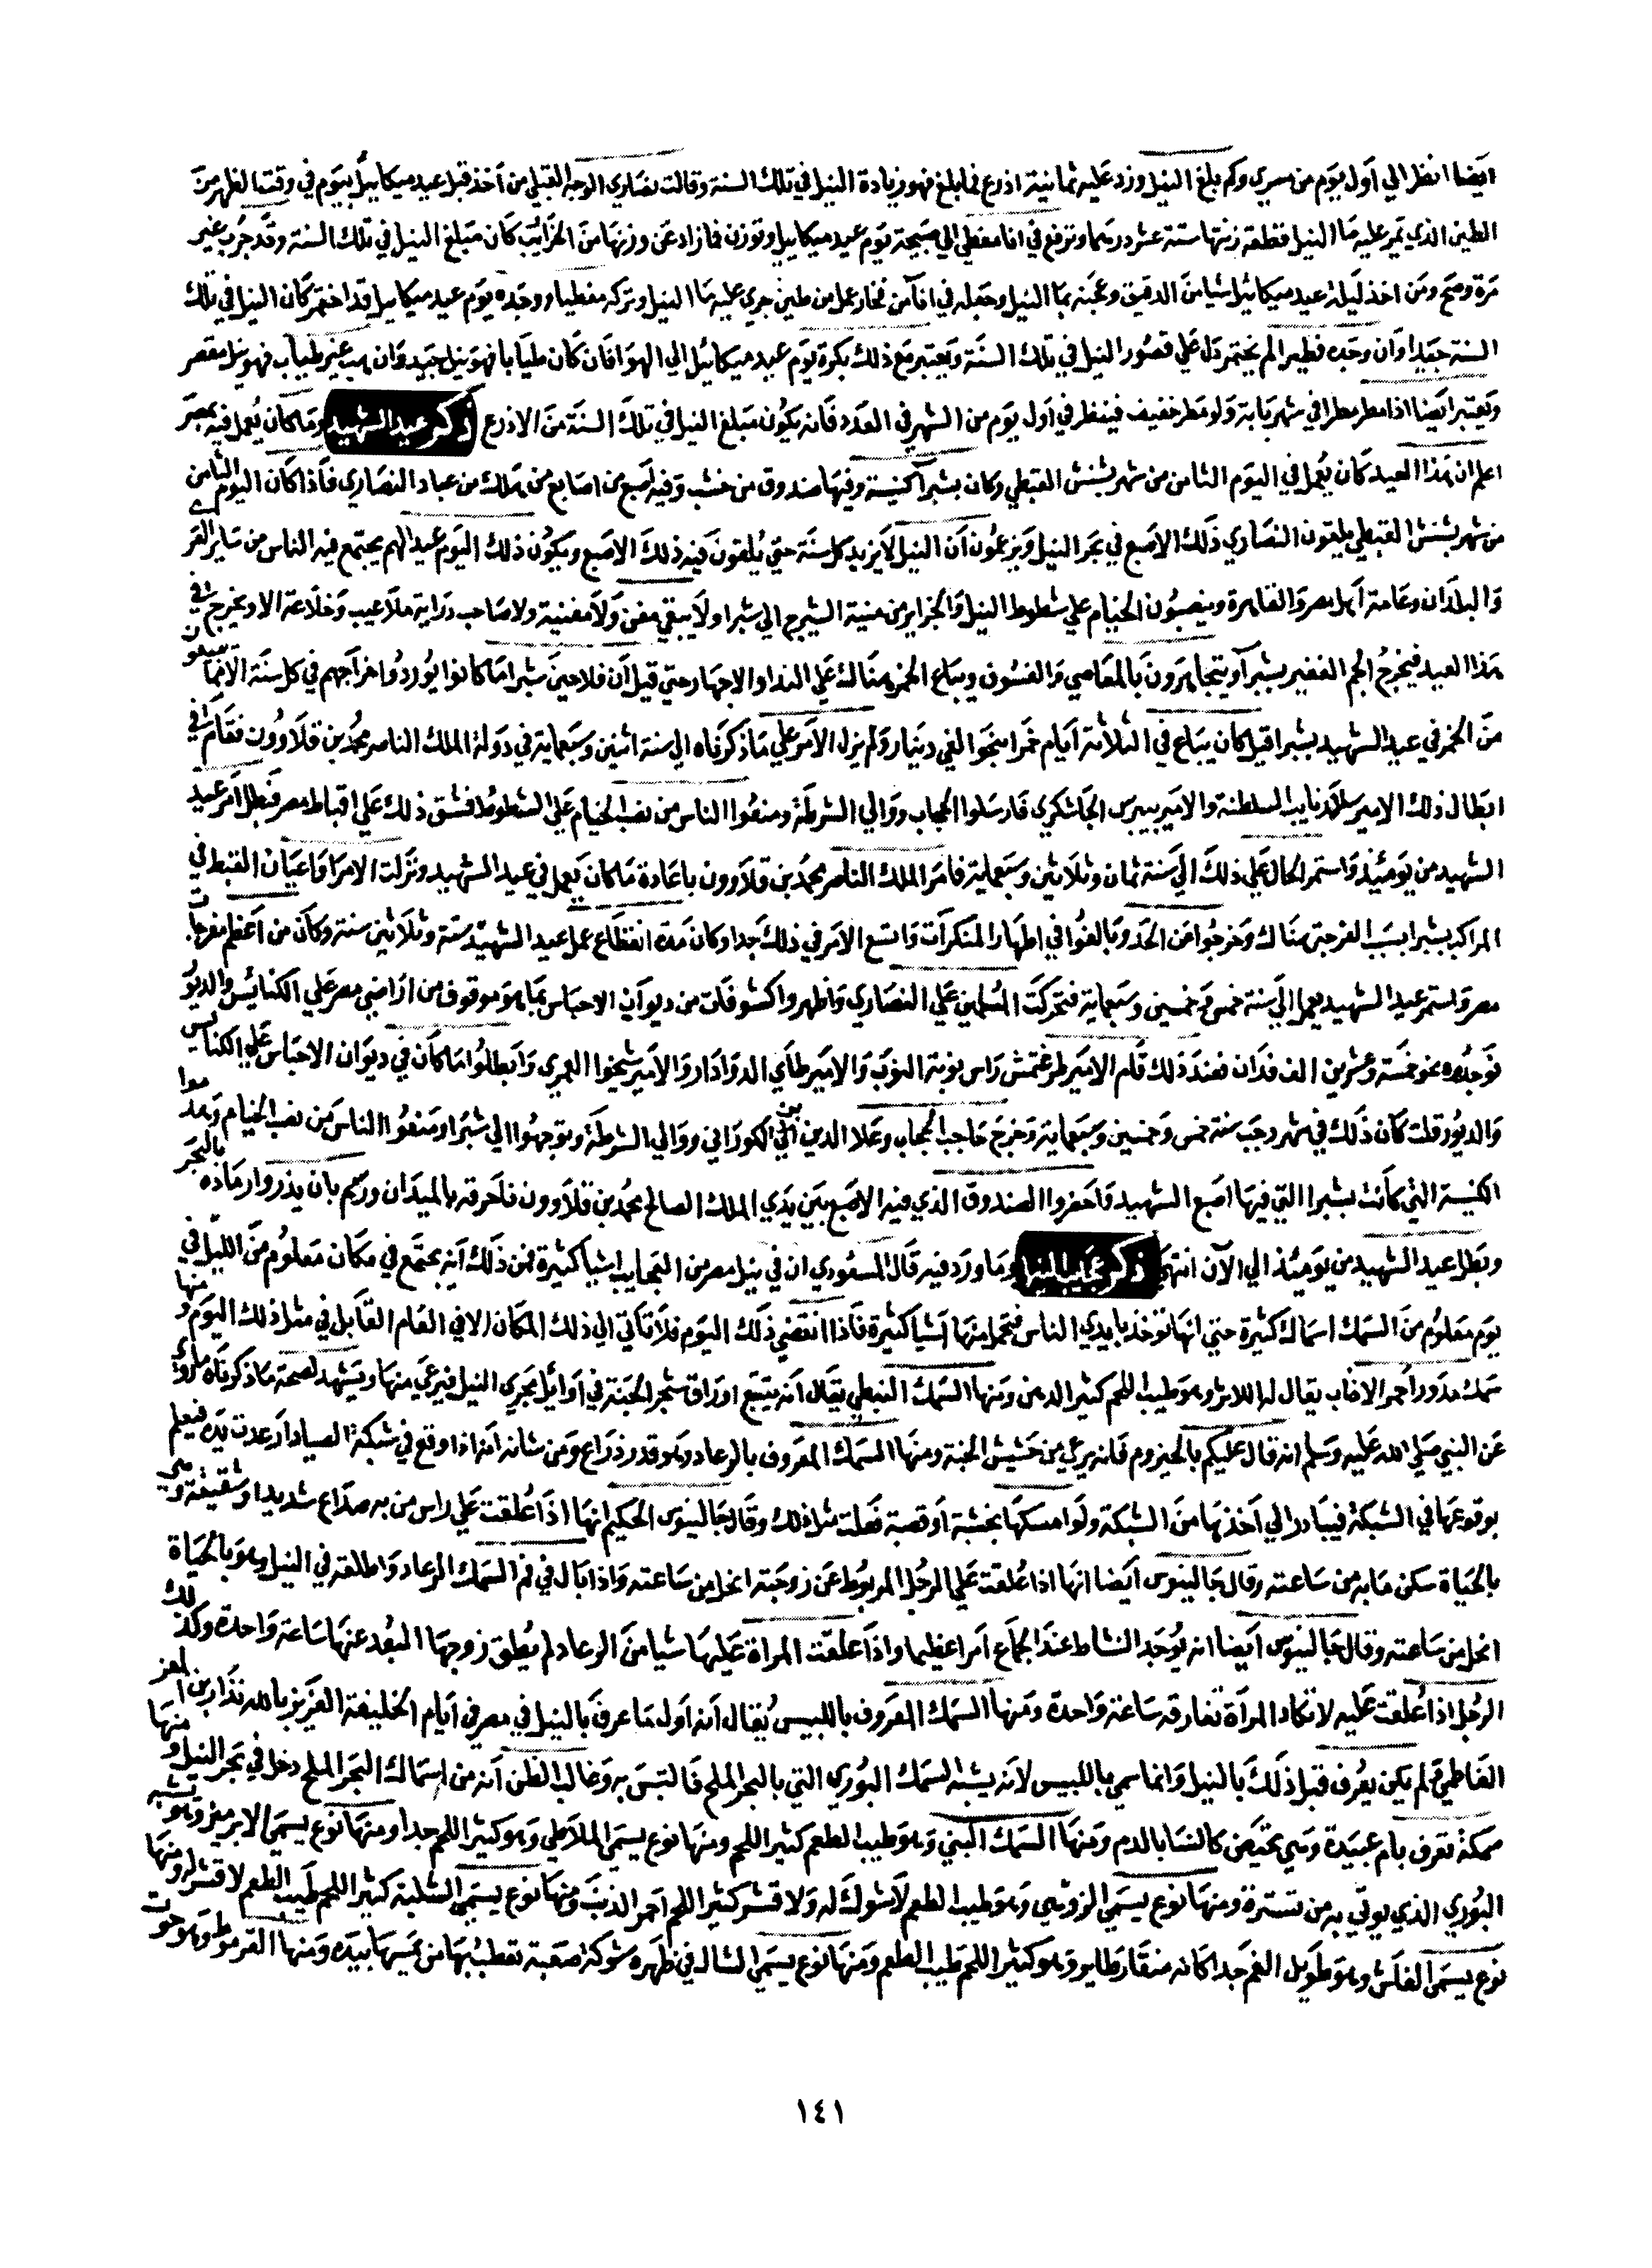 ايضا انظر الي اول يوم من مسري وكم بلغ النيل وزد عليه ثمانية اذرع فما بلغ فهو زيادة النيل في تلك السنة وقالت نصاري الوجه القبلي من اخذ قبل عيد ميكاييل بيوم في وقت الظهر من
الطين الذي يمر عليه ما النيل قطعة زنتها ستة عشر درهما وترفع في انا مغطي الي صبيحة يوم عيد ميكاييل وتوزن فما زاد عن وزنها من الخراريب كان مبلغ النيل في تلك السنة وقد جرب غير
مرة وصح ومن اخذ ليلة عيد ميكائيل شيا من الدقيق وعجنه بما النيل وجعله في انا من فخار عمل من طين جري عليه ما النيل وتركه مغطيا ووجده يوم عيد ميكاييل قد اختمر كان النيل في تلك
السنة جيدا وان وجده فطيرا لم يختمر دل علي قصور النيل في تلك السنة ويعتبر مع ذلك بكرة يوم عيد ميكائيل الي الهوا فان كان طيابا فهو نيل جيد وان هب غير طياب فهو نيل مقصر
ويعتبر ايضا اذا مطر مطرا في شهر بابة ولو مطر خفيف فينظر في اول يوم من الشهر في العدد فانه يكون مبلغ النيل في تلك السنة من الاذرع ذكر عيد الشهيد وما كان يعمل فيه بمصر
اعلم ان هذا العيد كان يعمل في اليوم الثامن من شهر بشنش القبطي وكان بشبرا كنيسة وفيها صندوق من خشب وفيه اصبع من اصابع من هلك من عباد النصاري فاذا كان اليوم الثامن
من شهر بشنش القبطي يلقون النصاري ذلك الاصبع في بحر النيل ويزعمون ان النيل لا يزيد كل سنة حتي يلقون فيه ذلك الاصبع ويكون ذلك اليوم عيدا لهم يجتمع فيه الناس من ساير القري
والبلدان وعامة اهل مصر والقاهرة وينصبون الخيام علي شطوط النيل والجزاير من منية الشيرج الي شبرا ولا يبقي مغن ولا مغنية ولا صاحب دراية ملاعيب وخلاعة الا ويخرج في
هذا العيد فيخرج الجم الغفير بشبرا ويتجاهرون بالمعاصي والفسوق ويباع الخمر هناك علي الندا والاجهار حتي قيل ان فلاحين شبرا ما كانوا يوردوا خراجهم في كل سنة الا مما يبيعون
من الخمر في عيد الشهيد بشبرا قيل كان يباع في الثلاثة ايام خمرا بنحو الفي دينار ولم يزل الامر علي ما ذكرناه الي سنة اثنين وسبعماية في دولة الملك الناصر محمد بن قلاوون فقام في
ابطال ذلك الامير سلار نايب السلطنة والامير بيبرس الجاشنكري فارسلوا الحجاب ووالي الشرطة ومنعوا الناس من نصب الخيام علي الشطوط فشق ذلك علي اقباط مصر فبطل امر عيد
الشهيد من يومئذ واستمر الحال علي ذلك الي سنة ثمان وثلاثين وسبعماية فامر الملك الناصر محمد بن قلاوون باعادة ما كان يعمل في عيد الشهيد ونزلت الامرا واعيان القبط في
المراكب بشبرا بسبب الفرجة هناك وخرجوا عن الحد وبالغوا في اظهار المنكرات واتسع الامر في ذلك جدا وكان مدة انقطاع عمل عيد الشهيد ستة وثلاثين سنة وكان من اعظم مفرجات
مصر واستمر عيد الشهيد يعمل الي سنة خمس وخمسين وسبعماية فتحركت المسلمين علي النصاري واظهروا كشوفات من ديوان الاحباس بما هو موقوف من اراضي مصر علي الكنائس والديور
فوجدوه نحو خمسة وعشرين الف فدان فعند ذلك قام الامير طرغتمش راس نوبة النوب والامير طاي الدوادار والامير شيخوا العمري وابطلوا ما كان في ديوان الاحباس علي الكنايس
والديور قلت كان ذلك في شهر رجب سنة خمس وخمسين وسبعماية وخرج حاجب الحجاب وعلا الدين بن الكوراني ووالي الشرطة وتوجهوا الي شبرا ومنعوا الناس من نصب الخيام وهدموا
الكنيسة التي كانت بشبرا التي فيها اصبع الشهيد واحضروا الصندوق الذي فيه الاصبع بين يدي الملك الصالح محمد بن قلاوون فاحرقه بالميدان ورسم بان يذروا رماده بالبحر
وبطل عيد الشهيد من يومئذ الي الآن انتهي ذكر عجايب النيل وما ورد فيه قال المسعودي ان في نيل مصر من العجايب اشيا كثيرة فمن ذلك انه يجتمع في مكان معلوم من النيل في
يوم معلوم من السمك اسماك كثيرة حتي انها توخذ بايدي الناس فتحمل منها اشيا كثيرة فاذا انقضي ذلك اليوم فلا تاتي الي ذلك المكان الا في العام القابل في مثل ذلك اليوم ومنها
سمك مدور احمر الاذناب يقال له اللاش وهو طيب اللحم كثير الدهن ومنها السمك النبطي يقال انه يتبع اوراق شجر الجنة في اوايل مجري النيل فيرعي منها ويشهد لصحة ما ذكرناه ما روي
عن النبي صلي الله عليه وسلم انه قال عليكم بالحيزوم فانه يرعي من حشيش الجنة ومنها السمك المعروف بالرعاد وهو قدر ذراع ومن شانه انه اذا وقع في شبكة الصياد ارعدت يده فيعلم
بوقوعها في الشبكة فيبادر الي اخذها من الشبكة ولو امسكها بخشبة او قصبة فعلت مثل ذلك وقال جالينوس الحكيم انها اذا علقت علي راس من به صداع شديد او شقيقة وهي
بالحياة سكن ما به من ساعته وقال جالينوس ايضا انها اذا علقت علي الرجل المربوط عن زوجته انحل من ساعته واذا بال في فم السمك الرعاد واطلقه في النيل وهو بالحياة
انحل من ساعته وقال جالينوس ايضا انه يوجد النشاط عند الجماع امرا عظيما واذا علقت المراة عليها شيا من الرعاد لم يطق زوجها البعد عنها ساعة واحدة وكذلك
الرجل اذا علقت عليه لا تكاد المراة تفارقه ساعة واحدة ومنها السمك المعروف باللبيس يقال انه اول ما عرف بالنيل في مصر في ايام الخليفة العزيز بالله نذار بن المعز
الفاطمي ولم يكن يعرف قبل ذلك بالنيل وانما سمي باللبيس لانه يشبه السمك البوري التي بالبحر الملح فالتبس به وغالب الظن انه من اسماك البحر الملح دخل في بحر النيل ومنها
سمكة تعرف بام عبيدة وهي تحيض كالنسا بالدم ومنها السمك البني وهو طيب الطعم كثير اللحم ومنها نوع يسمي الملاطي وهو كثير اللحم جدا ومنها نوع يسمي الابرميز وهو يشبه
البوري الذي يوتي به من تسترة ومنها نوع يسمي الزوشي وهو طيب الطعم لا شوك له ولا قشر كثير اللحم احمر الذنب ومنها نوع يسمي الشلبة كثير اللحم طيب الطعم لا قشر له ومنها
نوع يسمي الفلش وهو طويل الفم جدا كانه منقار طاير وهو كثير اللحم طيب الطعم ومنها نوع يسمي الشال في ظهره شوكة صعبة تعطب بها من يمسها بيده ومنها القرموط وهو حوت
١٤١